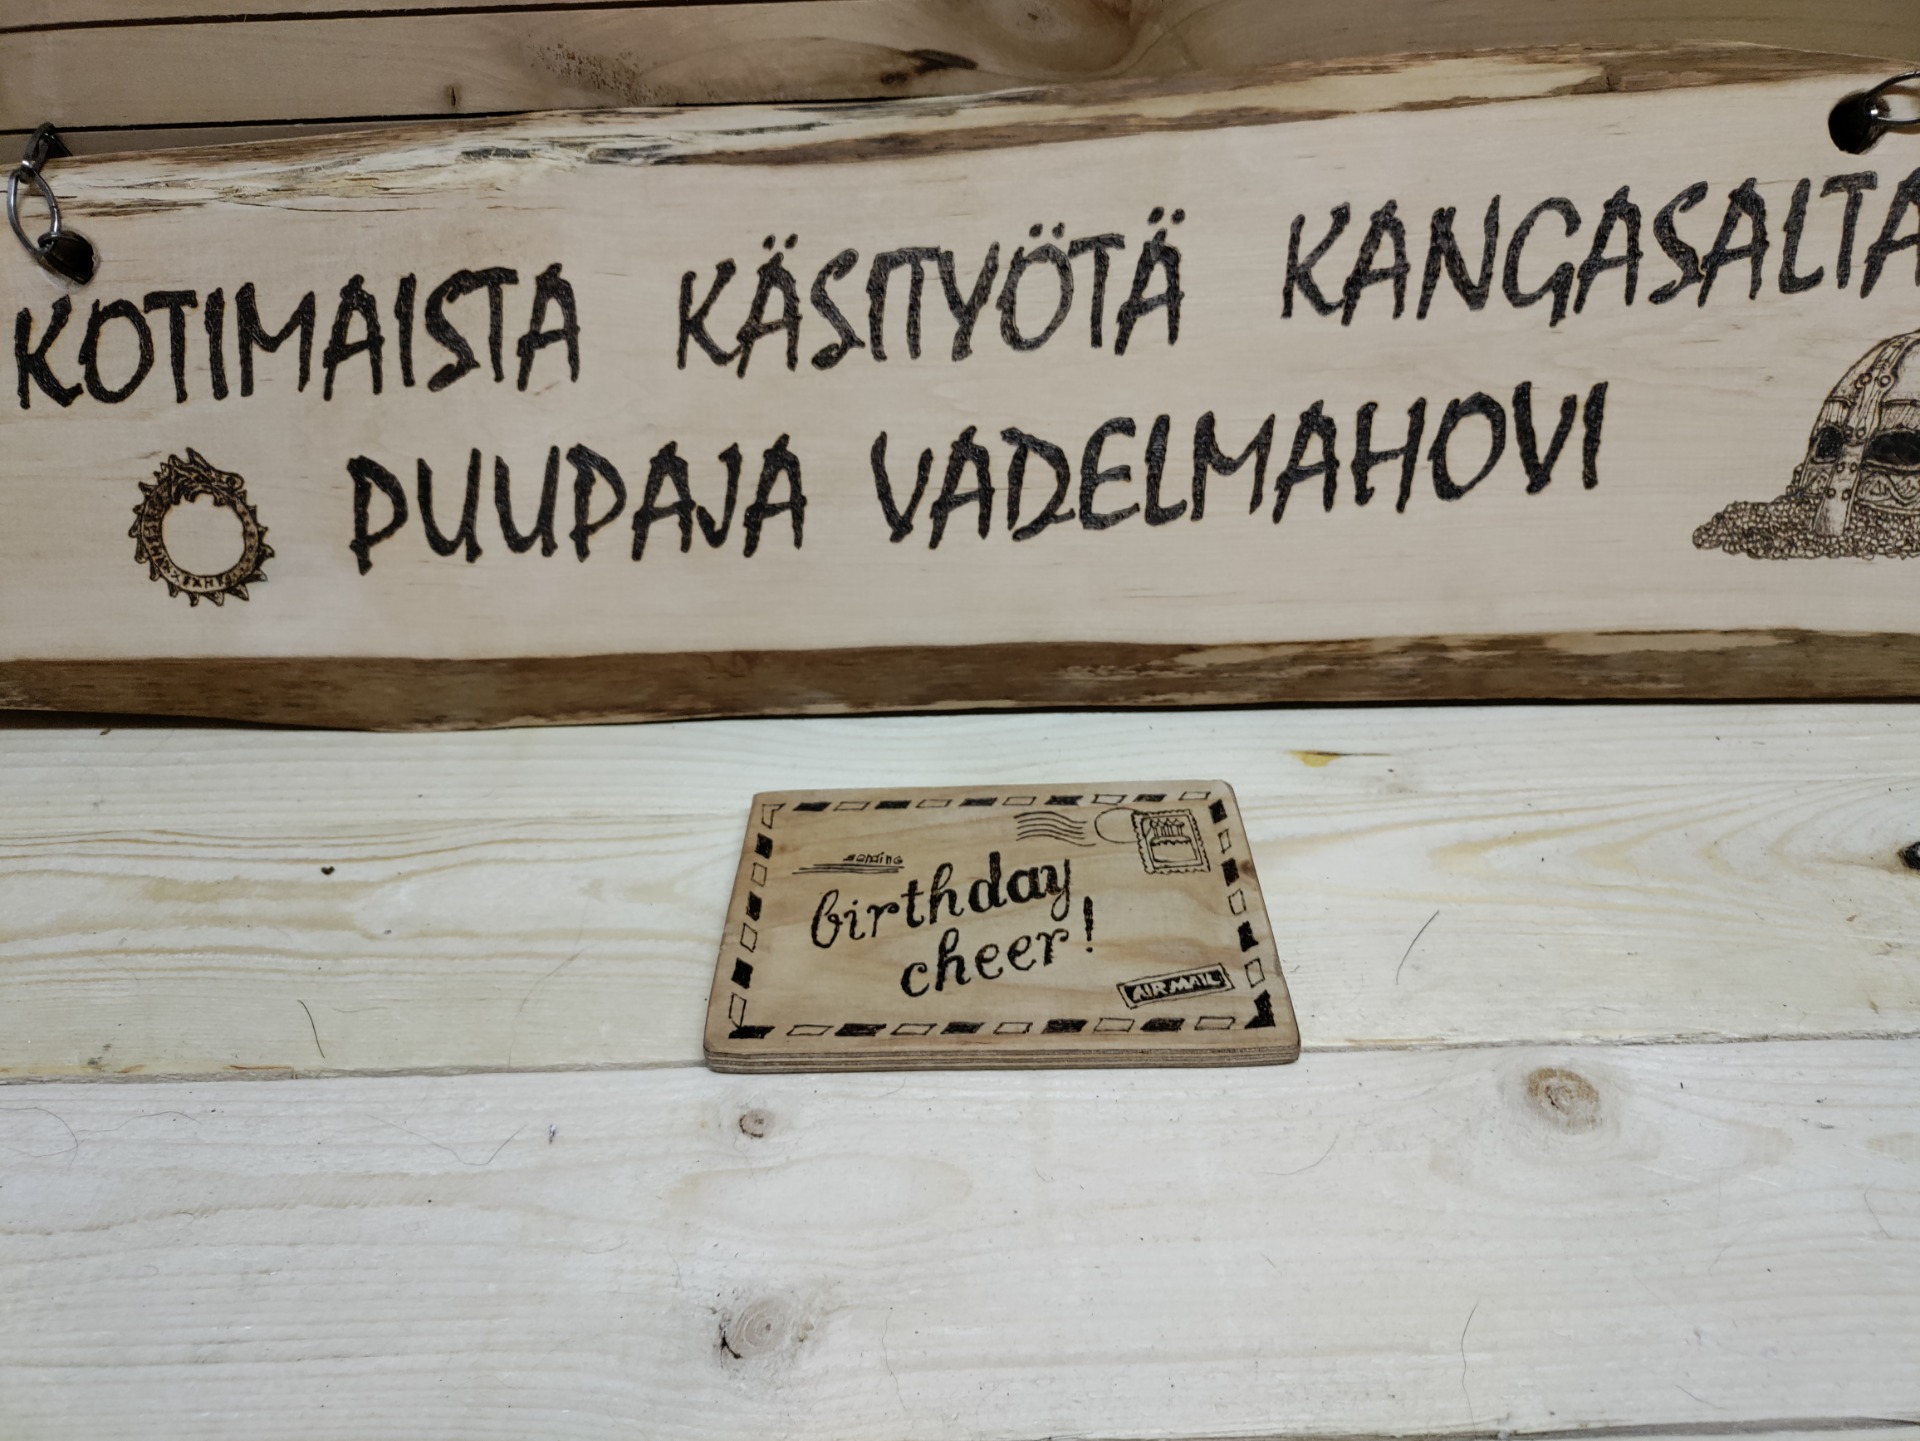 KOTIMAISTA KÄSITYÖTÄ KANGASALTA
PUUPAJA VADELMAHOVI
sending
birthday
cheer!
AIR MAIL